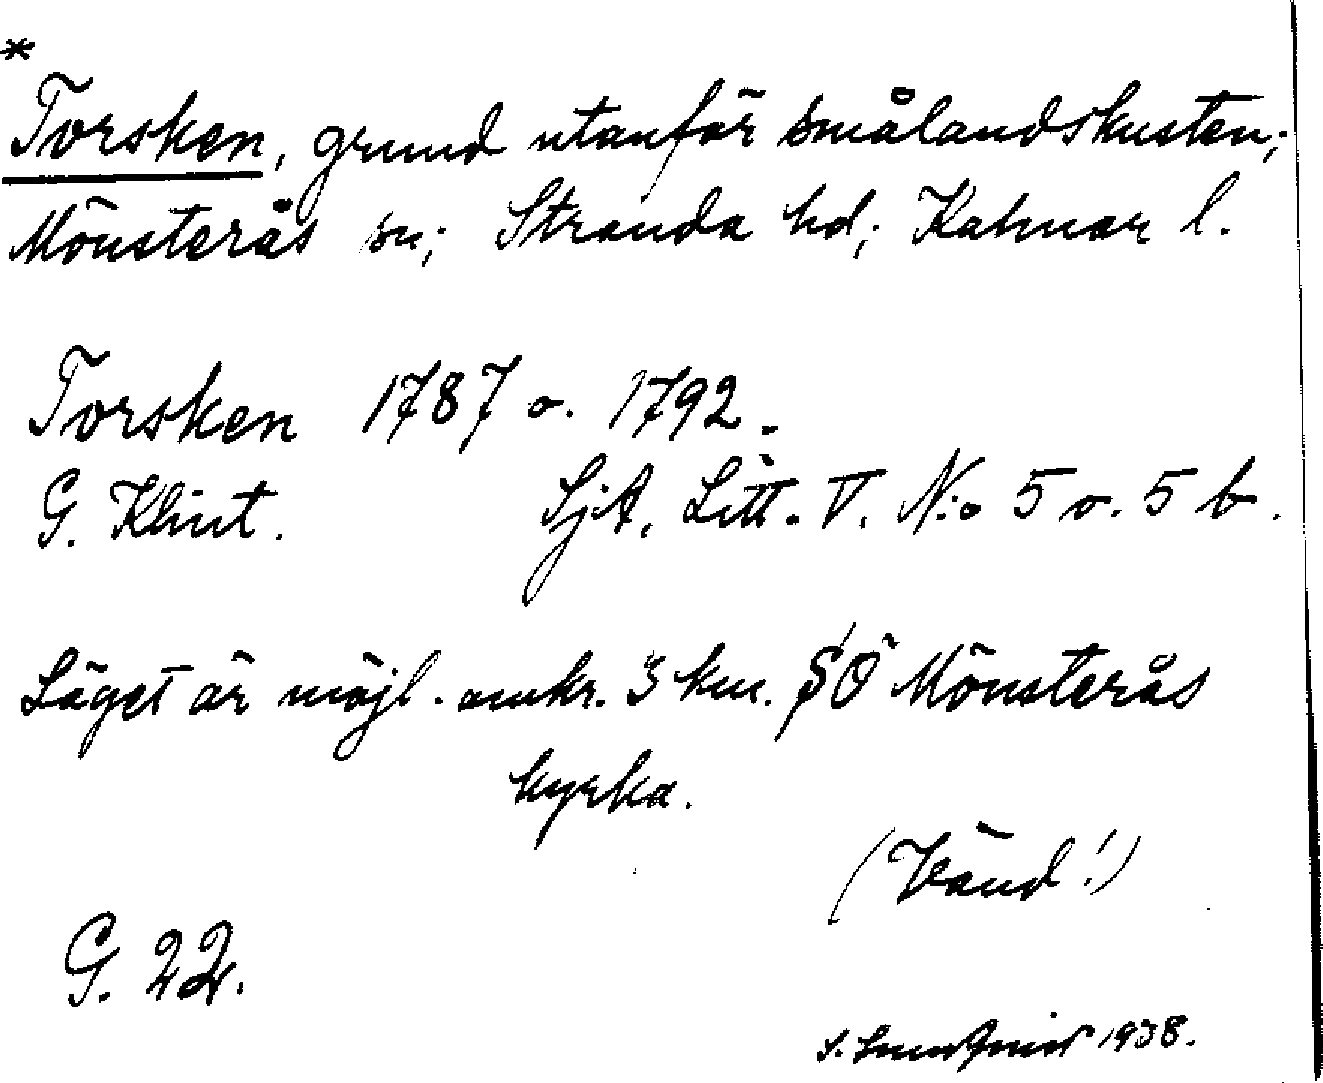 *
Torsken, grund utanför smålandskusten;
Mönsterås sn; Stranda hd; Kalmar l.
Torsken 1787 o. 1792.
G. Klint. SjA. Litt. V. N:o 5 o. 5 b.
Läget är möjl. omkr. 3 km. SÖ Mönsterås
kyrka.
(Vänd!)
G. 22.
S. 1938.